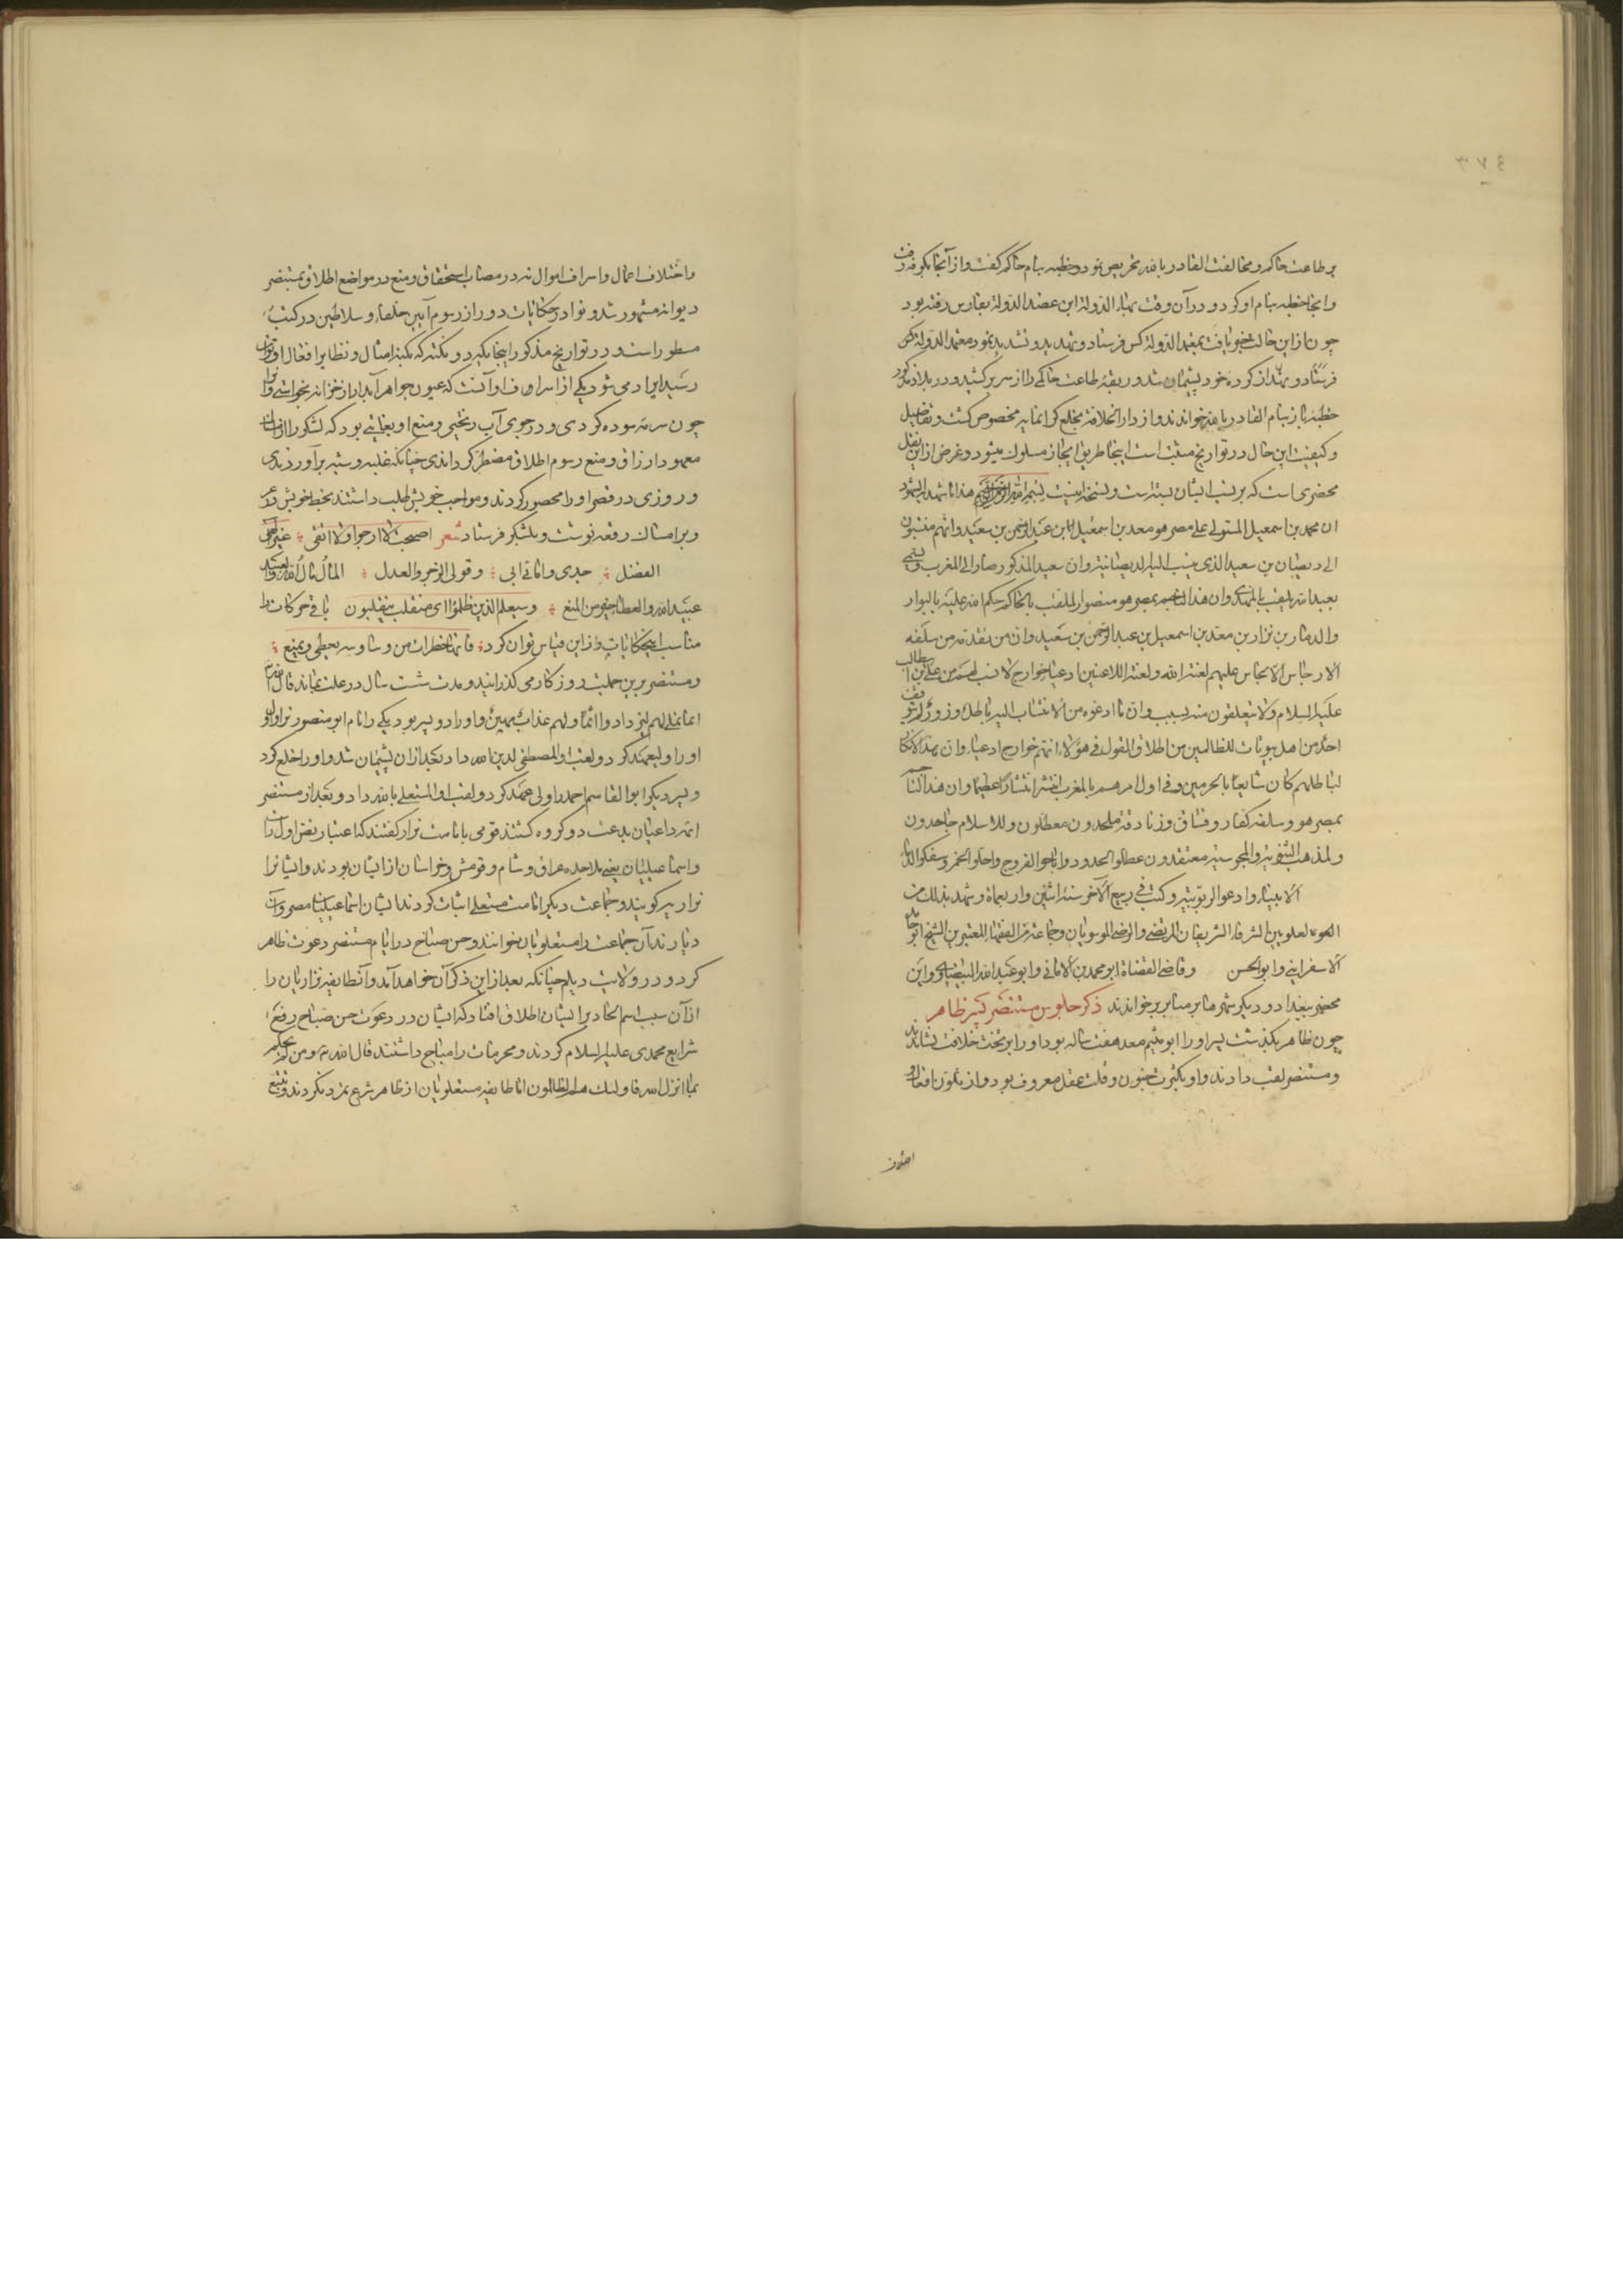 ۳۷٤
بر طاعت حاکم و مخالفت القادر بالله تحریض نمود و خطبه بنام حاکم گفت و از آنجا بکوفه رفت
و آنجا خطبه بنام او کرد و در آن وقت بهاء الدولة ابن عضد الدولة بفارس رفته بود
چون از این حالت خبر یافت بمعتمد الدولة کس فرستاد و تهدید و تشدید نمود معتمد الدولة کس
فرستاد و بهاء از کرده خود پشیمان شد و ربقهٔ طاعت حاکم را از سر برکشید و در بلاد مذکور
خطبه باز بنام القادر بالله خواندند و از دار الخلافة بخلع گرانمایه مخصوص گشت و تفاصیل
و کیفیت این حال در تواریخ مثبت است اینجا طریق ایجاز مسلوک میشود و غرض از این نقل
محضری است که بر نسب ایشان بسته است و نسخه اینست بسم الله الرحمن الرحیم هذا ما شهد به الشهود
ان محمد بن اسمعیل المستولی علی مصر هو معد بن اسمعیل ابن عبد الرحمن بن سعید و انهم منتسبون
الی دیصان بن سعید الذی ینسب الیه الدیصانیة و ان سعید المذکور صار الی المغرب و تسمی
بعبید الله و یلقب بالمهدی و ان هذا الناجم بمصر هو منصور الملقب بالحاکم حکم الله علیه بالبوار
والدمار بن نزار بن معد بن اسمعیل بن عبد الرحمن بن سعید و ان من تقدمه من سلفه
الارجاس الانجاس علیهم لعنة الله و لعنة اللاعنین ادعیا خوارج لا نسب لهم من علی بن ابیطالب
علیه السلام و لا یتعلقون منه بسبب و ان ما ادعوه من الانتساب الیه باطل و زور و لم یتوقف
احد من اهل بیوتات للطالبین من اطلاق القول فی هؤلاء انهم خوارج ادعیاء و ان هذا الانکار
لباطلهم کان شایعا بالحرمین و فی اول امرهم بالمغرب انتشر انتشارا عظیما و ان هذا الناجم
بمصر هو و سلفه کفار و فساق و زنادقة ملحدون معطلون و للاسلام جاحدون
و لمذهب الثنویة و المجوسیة معتقدون عطلوا الحدود و اباحوا الفروج و احلوا الخمر و سفکوا الدماء
الانبیاء و ادعوا الربوبیة و کتب فی ربیع الآخر سنة اثنین و اربعماة و شهد بذلک من
العلویین الشرفاء الشریفان المرتضی و الرضی الموسویان و جماعة من الفقهاء المعتبرین الشیخ ابو حامد
الاسفراینی و ابو الحسن و قاضی القضاة ابو محمد بن الاکفانی و ابو عبد الله البیضاوی و این
محضر ببغداد و دیگر شهرها بر منابر برخواندند ذکر جلوس مستنصر پسر ظاهر
چون ظاهر بگذشت پسر او را ابو تمیم معد هفت ساله بود او را بر تخت خلافت نشاندند
و مستنصر لقب دادند و او بکثرت جنون و قلت عقل معروف بود و از تلون افعال و
اختلاف
و اختلاف اعمال و اسراف اموال نه در مصاب استحقاق و منع در مواضع اطلاق بمستنصر
دیوانه مشهور شد و نوادر حکایات دور از رسوم و آیین خلفاء و سلاطین در کتب
مسطور است و در تواریخ مذکور اینجا یکی دو نکته که بکنه امثال و نظایر افعال او توان
رسید ایراد می شود یکی از اسراف او آنست که عیون جواهر آبدار از خزانه بخواستی و آنرا
چون سرمه سوده کردی و در جوی آب ریختی و منع او بغایتی بود که لشکر را از اسباب
معهود ارزاق و منع رسوم اطلاق مضطر گرداندی چنانکه غلبه و شبه برآوردندی
و روزی در قصر او را محصور کردند و مواجب خویش طلب داشتند بخط خویش در
و بر امثال رقعه نوشت و بلشکر فرستاد شعر اصبحت لا ارجو و لا اتقی غیر الهی
الفضل جدی و امامی ابی و قولی الزجر و العدل المال مال الله و العبد
عبید الله و العطاء خیر من المنع و سیعلم الذین ظلموا ای منقلب ینقلبون باقی حرکات را
مناسب این حکایات و از این قیاس توان کرد فانها خطرات من وساوسه یعطی و یمنع
و مستنصر برین جملت روزگار می گذرانید و مدت شست سال در علت بماند قال الله تعالی
انما نملی لهم لیزدادوا اثما و لهم عذاب مهین و او را دو پسر بود یکی را نام ابو منصور نزار اول
او را ولیعهد کرد و لقب او المصطفی لدین الله داد بعد از آن پشیمان شد و او را خلع کرد
و پسر دیگر ابو القاسم احمد را ولی عهد کرد و لقب او المستعلی بالله داد و بعد از مستنصر
ائمه داعیان بدعت دو گروه گشتند قومی بامامت نزار گفتند که اعتبار نص اول راست
و اسماعیلیان یعنی ملاحده عراق و شام و قومش و خراسان از ایشان بودند و ایشانرا
نزاریه گویند و جماعت دیگر امامت مستعلی اثبات کردند ایشان اسماعیلیان مصر و آن
دیارند آن جماعت را مستعلویان خوانند و حسن صباح در ایام مستنصر دعوت ظاهر
کرد و در ولایت دیلم چنانکه بعد از این ذکر آن خواهد آمد و آن طایفه نزاریان را
از آن سبب اسم الحاد بر ایشان اطلاق افتاد که ایشان در دعوت حسن صباح رفع
شرایع محمدی علیه السلام کردند و محرمات را مباح داشتند قال الله تع و من لم یحکم
بما انزل الله فاولئک هم الظالمون اما طایفه مستعلویان از ظاهر شرع تمرد نکردند و تتبع